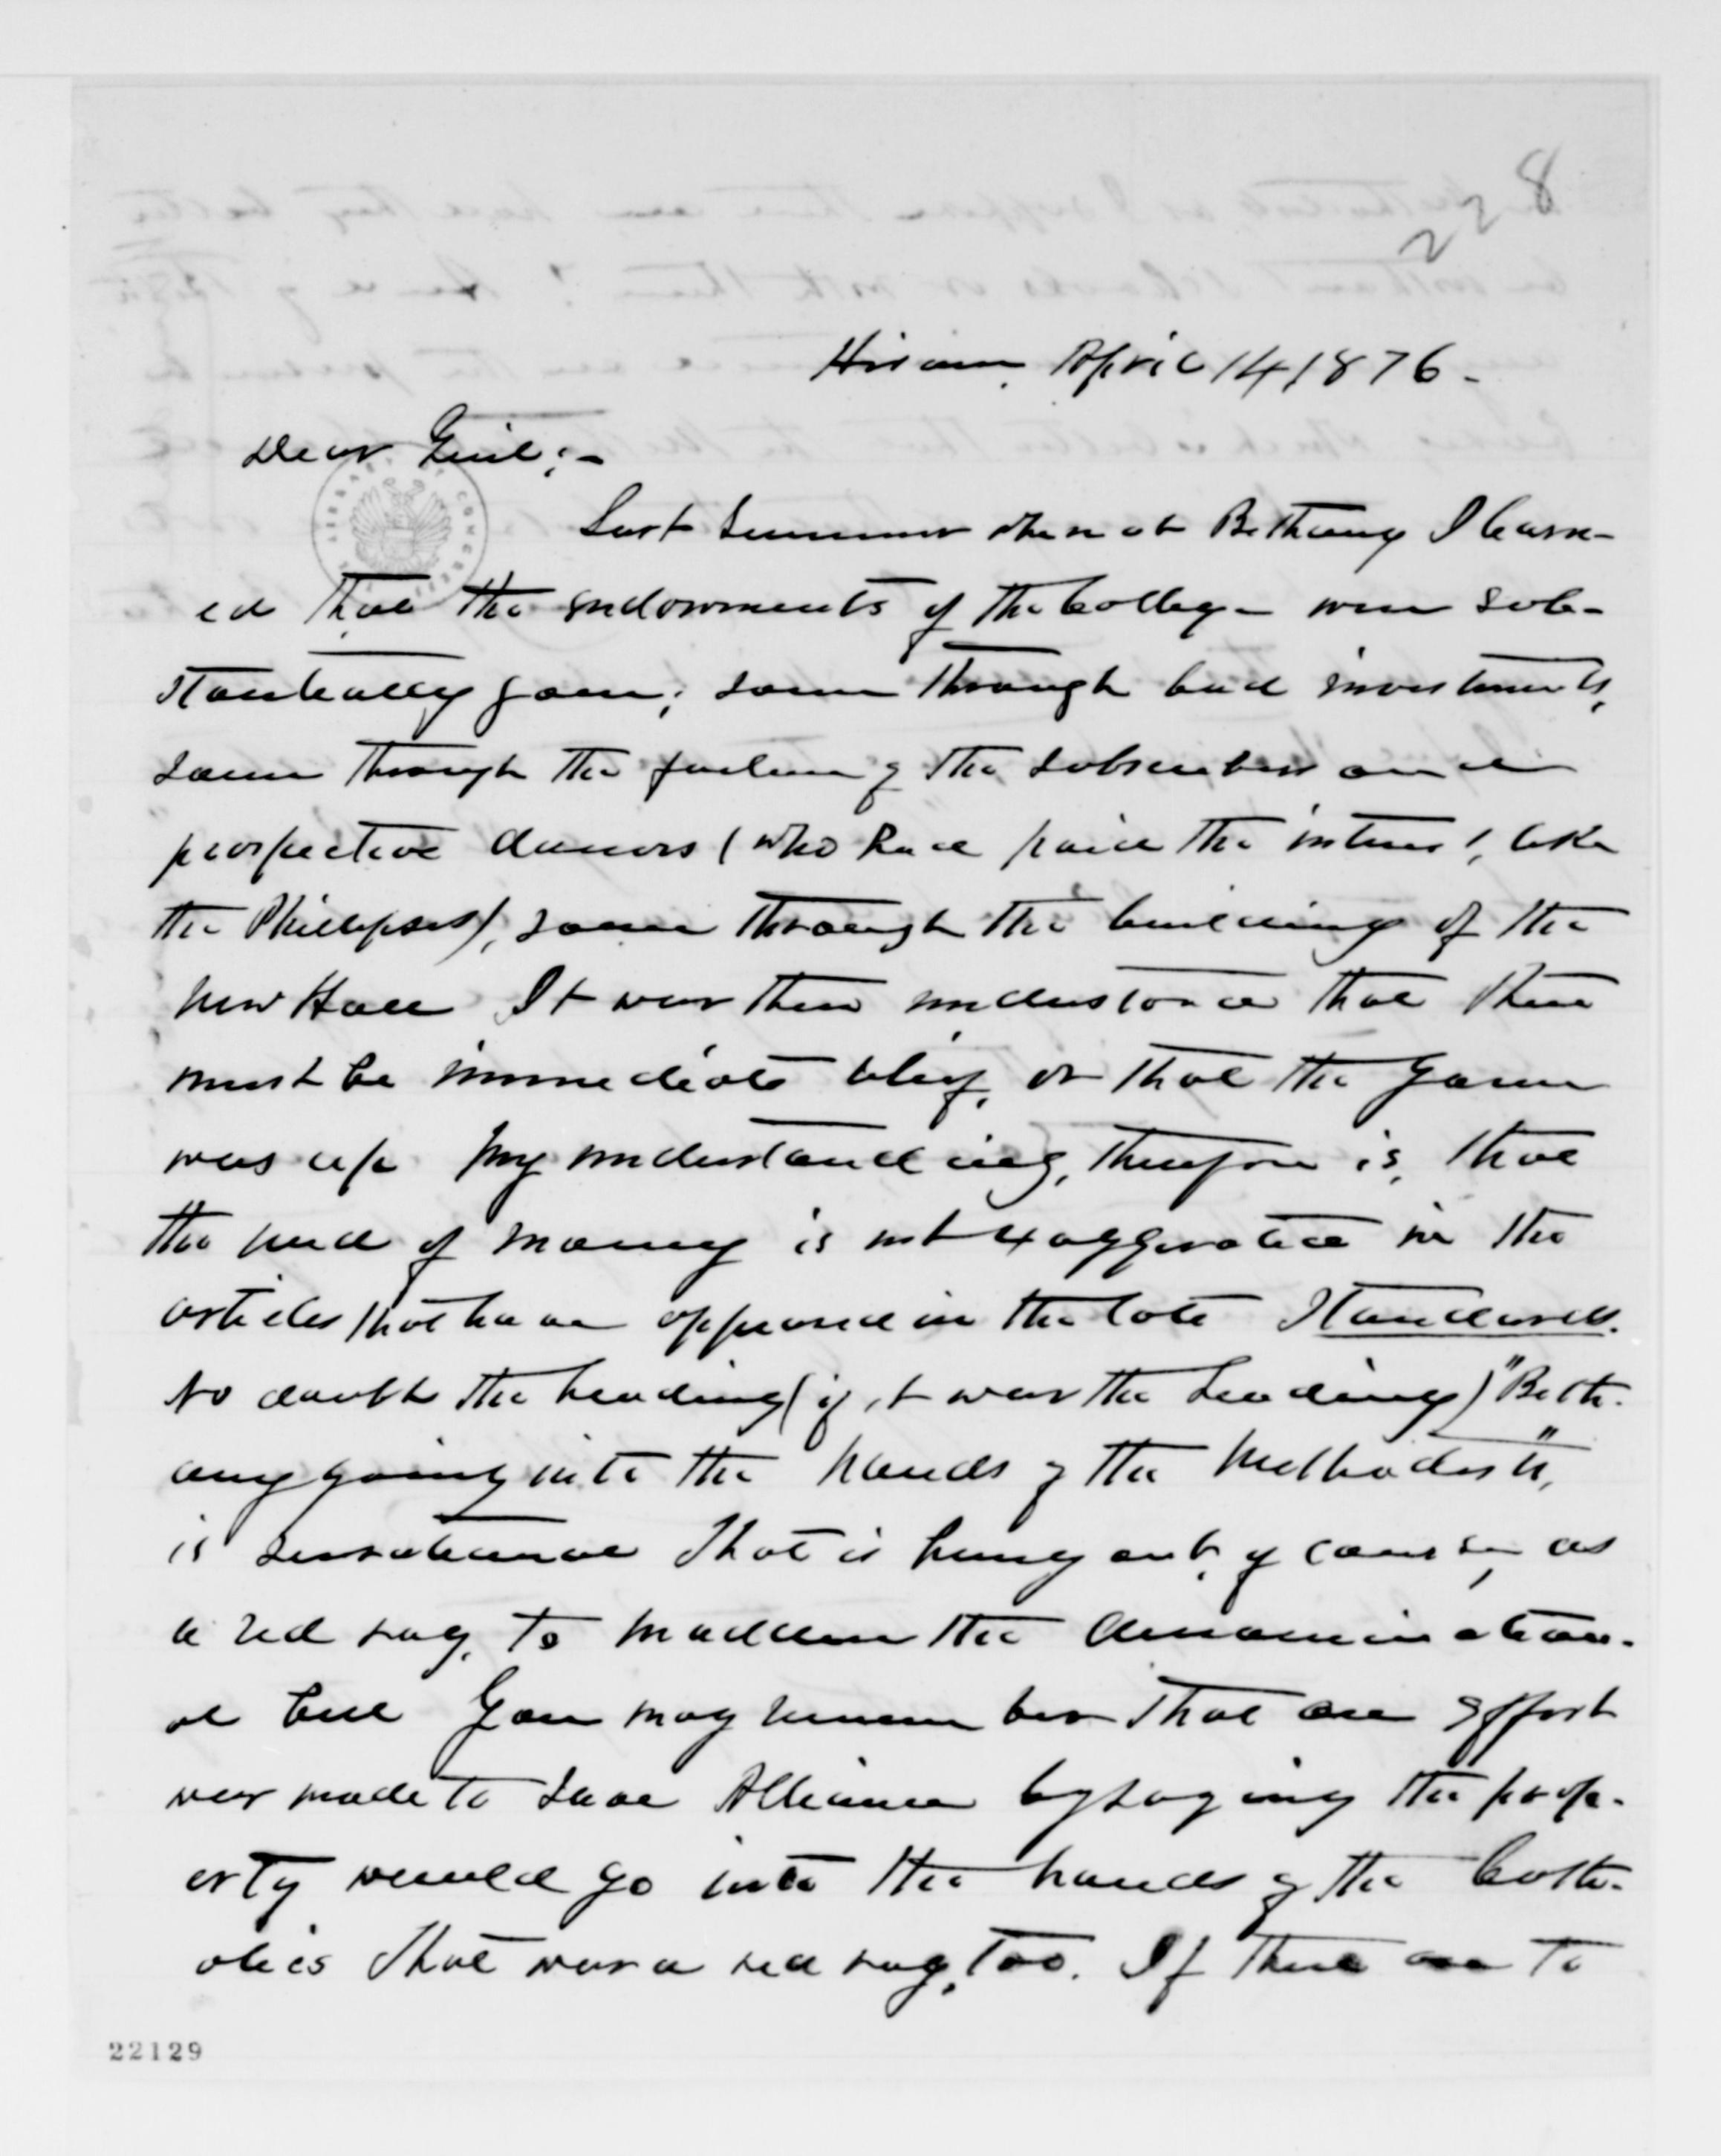 8
22
Hiram, April 14, 1876.
Dear Genl:-
Last summer when at Bethany I learn-
ed that the endowments of the College were sub-
stantially gone; some through bad investments,
some through the failure of the subscribers and
prospective donors (who have paid the interest, like
the Phillipses), some through the building of the
new Hall It was then understood that there
must be immediate relief, or that the game
was up My understanding, therefore is, that
the need of money is not exaggerated in the
articles that have appeared in the late Standards.
No doubt the heading (if it was the heading) "Beth-
any going into the hands of the Methodists",
is sensational That is hung out, of course, as
a red rag, to madden the denomination-
al bull You may remember that an effort
was made to save Alliance by saying the prop-
erty would go into the hands of the Cath-
olics That was a red rag, too. If there are to
LIBRARY OF CONGRESS
22129